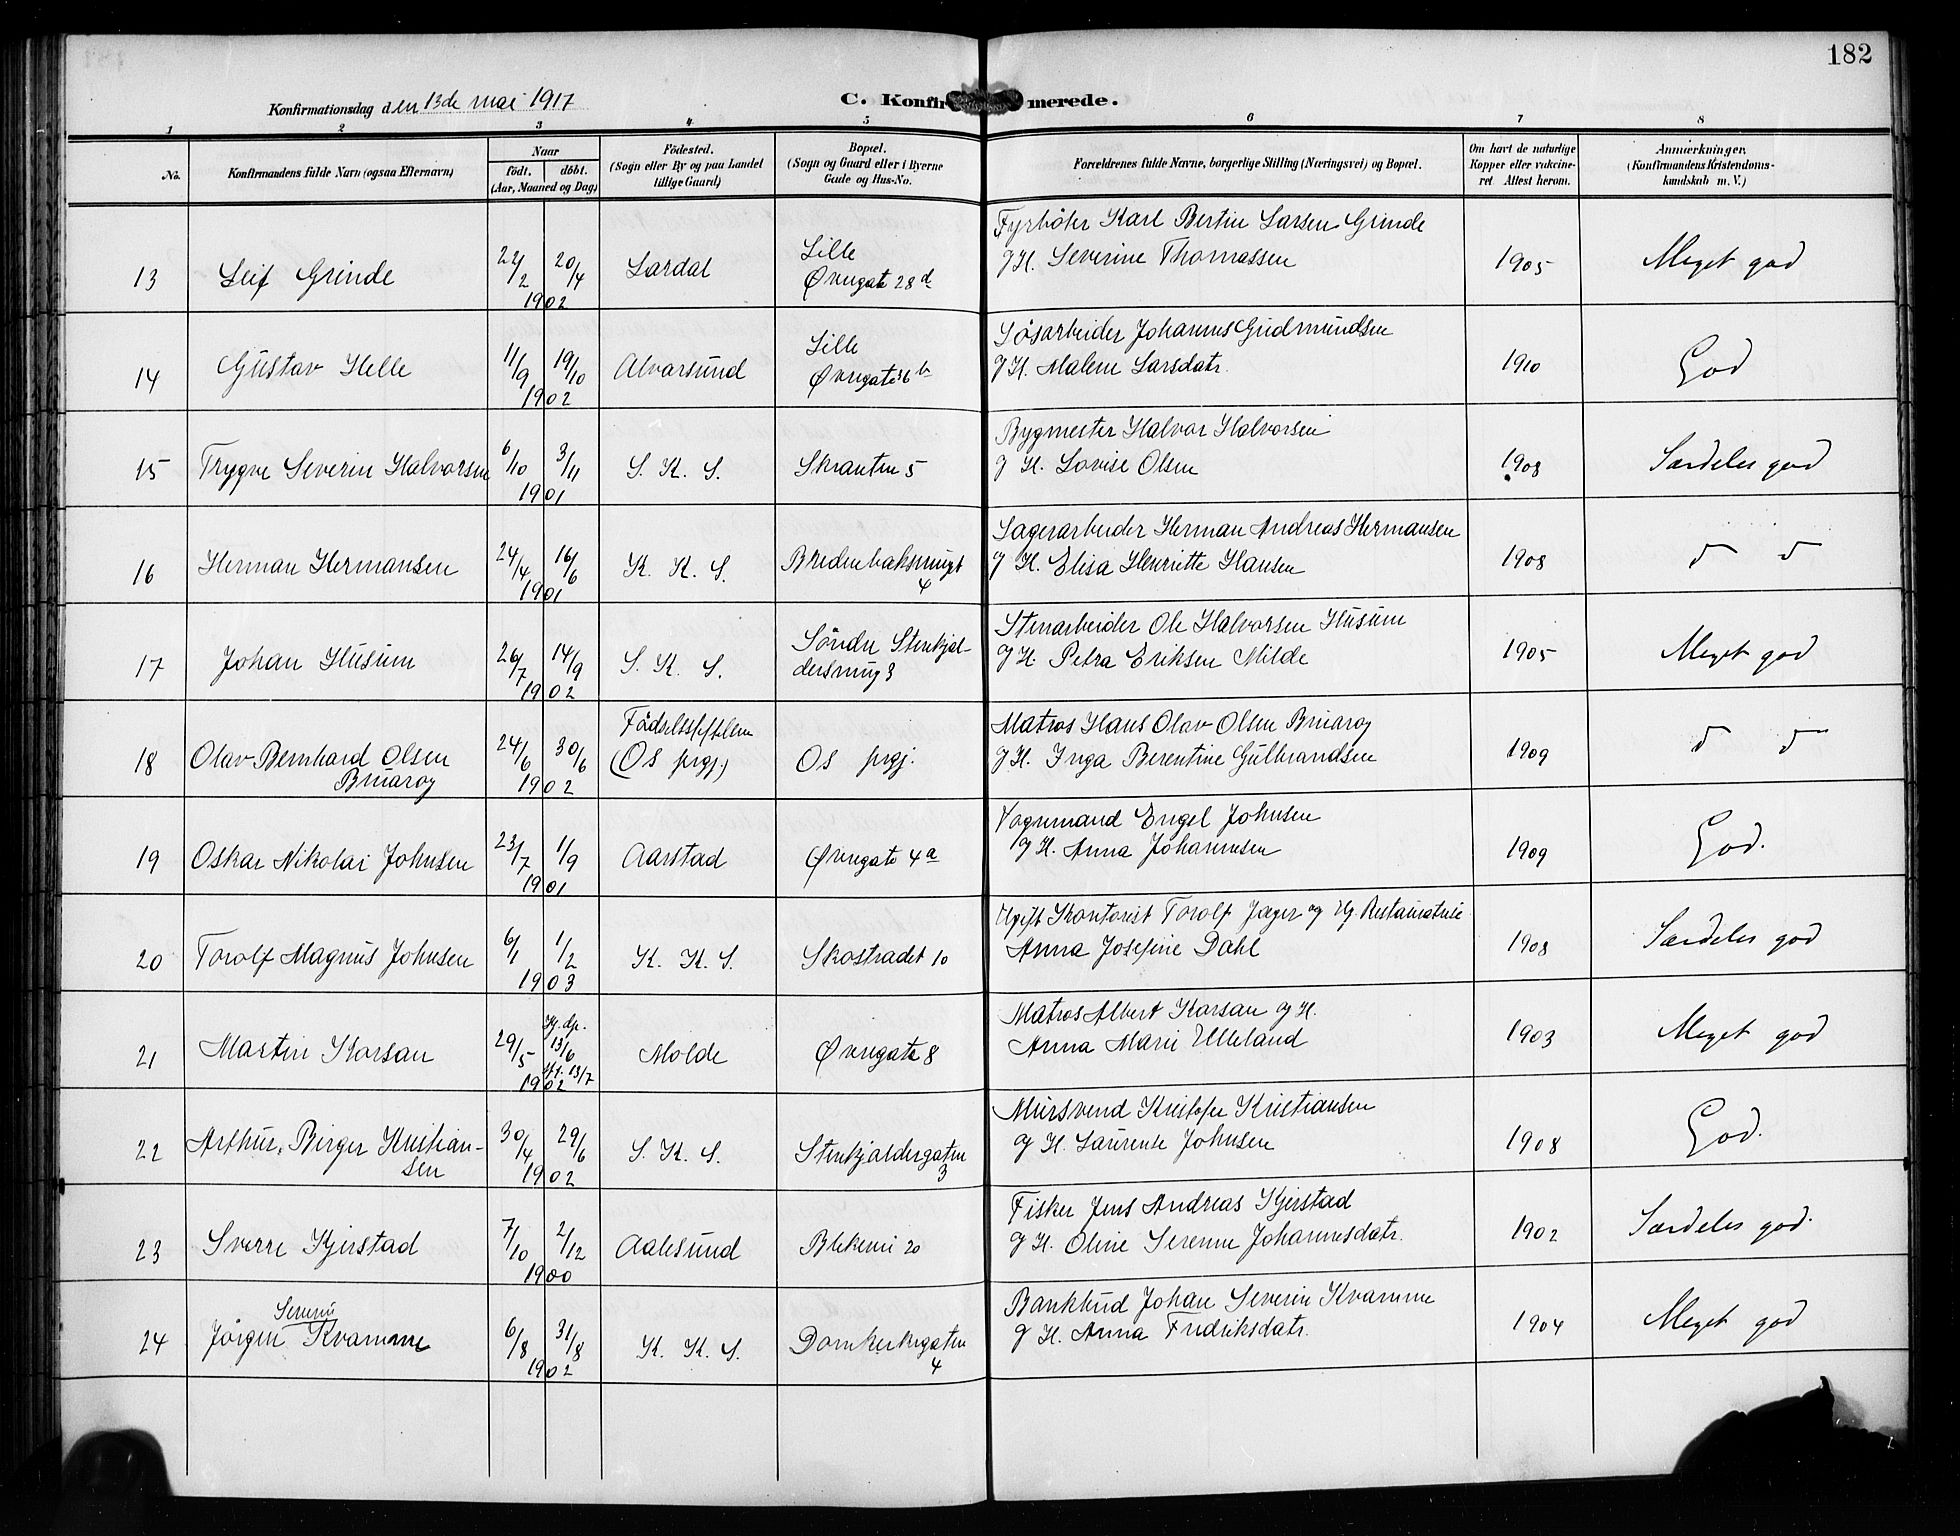 182
Konfirmationsdag den 13de mai 1917
C. Konfirmerede.
1 2 3 4 5 6 7 8
No. Konfirmandens fulde Navn (ogsaa Efternavn)
Naar født. døbt. (Aar, Maaned og Dag)
Fødested. (Sogn eller By og paa Landet tillige Gaard)
Bopæl. (Sogn og Gaard eller i Byerne Gade og Hus-No.
Forældrenes fulde Navne, borgerlige Stilling (Næringsvei) og Bopæl.
Om havt de naturlige Kopper eller vakcineret Attest herom.
Anmærkninger. (Konfirmandens Kristendomskundskab m. V.)
13 Leif Grinde 22/2 20/4 1902 Lardal Lille Øvregate 28d
Fyrbøter Karl Bertin Larsen Grinde
og H. Severine Thomassen 1905 Meget god
14 Gustav Helle 11/9 19/10 1902 Alvarsund Lille Øvregate 36b
Løsarbeider Johannes Gudmundsen
og H. Malene Larsdatr. 1910 God
15 Trygve Severin Halvorsen 6/10 3/11 1901 S. K. S. Skranten 5
Bygmester Halvor Halvorsen
og H. Lovise Olsen 1908 Særdeles god
16 Herman Hermansen 24/4 16/6 1901 K. K. S. Bredenbaksmugt 4
Lagerarbeider Herman Andreas Hermansen
og H. Elisa Henriette Hansen 1908 d d
17 Johan Husum 26/7 14/9 1902 S. K. S. Søndre Stenkjeldersmug 3
Stenarbeider Ole Halvorsen Husum
og H. Petra Eriksen Milde 1905 Meget god
18 Olav Bernhard Olsen
Bruarøy 24/6 30/6 1902 Fødselsstiftelsen
(Os prgj.) Os prgj.
Matros Hans Olav Olsen Bruarøy
og H. Inga Berentine Gulbrandsen 1909 d d
19 Oskar Nikolai Johnsen 23/7 1/9 1901 Aarstad Øvregate 4a
Vognmand Engel Johnsen
og H. Anna Johannesen 1909 God.
20 Torolf Magnus Johnsen 6/1 1/2 1903 K. K. S. Skostrædet 10
Ugift Kontorist Torolf Jæger og Ug. Restauratrise
Anna Josefine Dahl 1908 Særdeles god
21 Martin Korsan 29/5 Hj. dp. 13/6 st. 13/7 1902 Molde Øvregate 8
Matros Albert Korsan og H.
Anna Marie Ulleland 1903 Meget god
22 Arthur Birger Kristiansen 30/4 29/6 1902 S. K. S. Stenkjældergaten 3
Mursvend Kristofer Kristiansen
og H. Laurense Johnsen 1908 God.
23 Sverre Kjerstad 7/10 2/12 1900 Aalesund Blekevei 20
Fisker Jens Andreas Kjerstad
og H. Oline Serenne Johannesdatr. 1902 Særdeles god.
24 Jørgen Severin Kvamme 6/8 31/8 1902 K. K. S. Domkirkegaten 4
Bankbud Johan Severin Kvamme
og H. Anna Fredriksdatr. 1904 Meget god